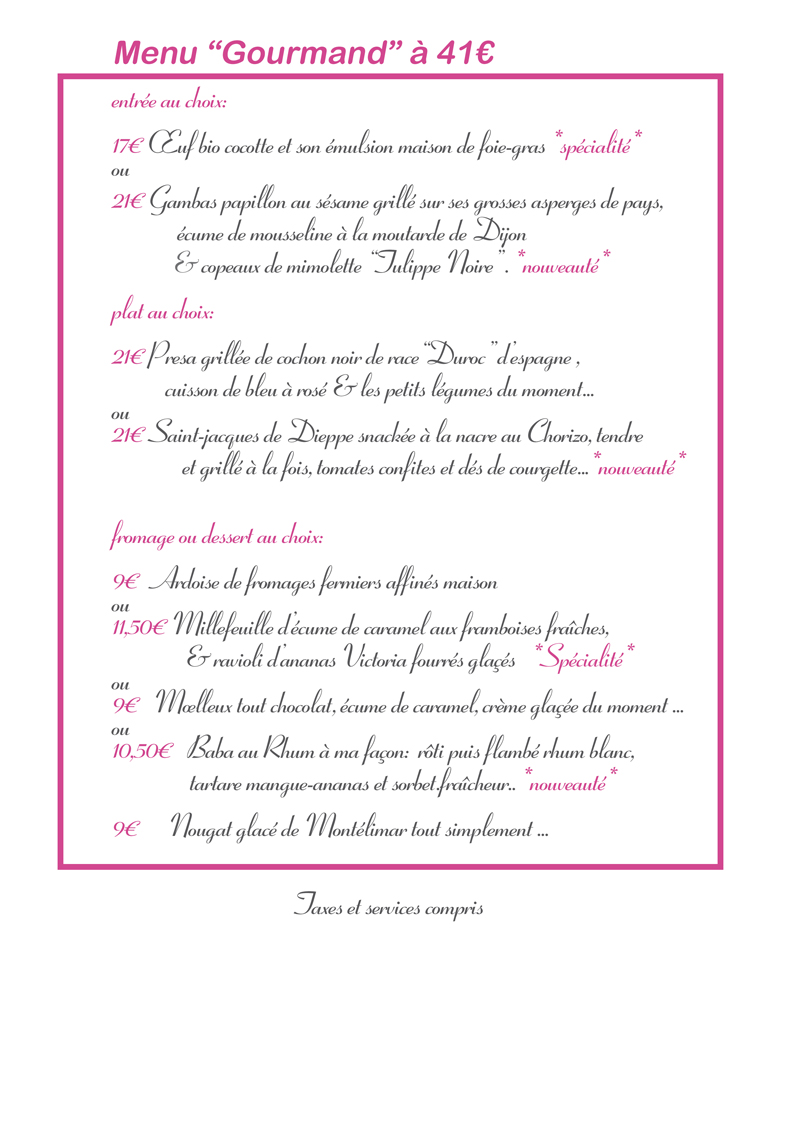 Menu “Gourmand” à 41€
entrée au choix:
17€ Œuf bio cocotte et son émulsion maison de foie-gras *spécialité*
ou
21€ Gambas papillon au sésame grillé sur ses grosses asperges de pays,
écume de mousseline à la moutarde de Dijon
& copeaux de mimolette “Tulippe Noire”. *nouveauté*
plat au choix:
21€ Presa grillée de cochon noir de race “Duroc” d’espagne ,
cuisson de bleu à rosé & les petits légumes du moment...
ou
21€ Saint-jacques de Dieppe snackée à la nacre au Chorizo, tendre
et grillé à la fois, tomates confites et dés de courgette... *nouveauté*
fromage ou dessert au choix:
9€ Ardoise de fromages fermiers affinés maison
ou
11,50€ Millefeuille d’écume de caramel aux framboises fraîches,
& ravioli d’ananas Victoria fourrés glaçés *Spécialité*
ou
9€ Mœlleux tout chocolat, écume de caramel, crème glaçée du moment ...
ou
10,50€ Baba au Rhum à ma façon: rôti puis flambé rhum blanc,
tartare mangue-ananas et sorbet.fraîcheur.. *nouveauté*
9€ Nougat glacé de Montélimar tout simplement ...
Taxes et services compris